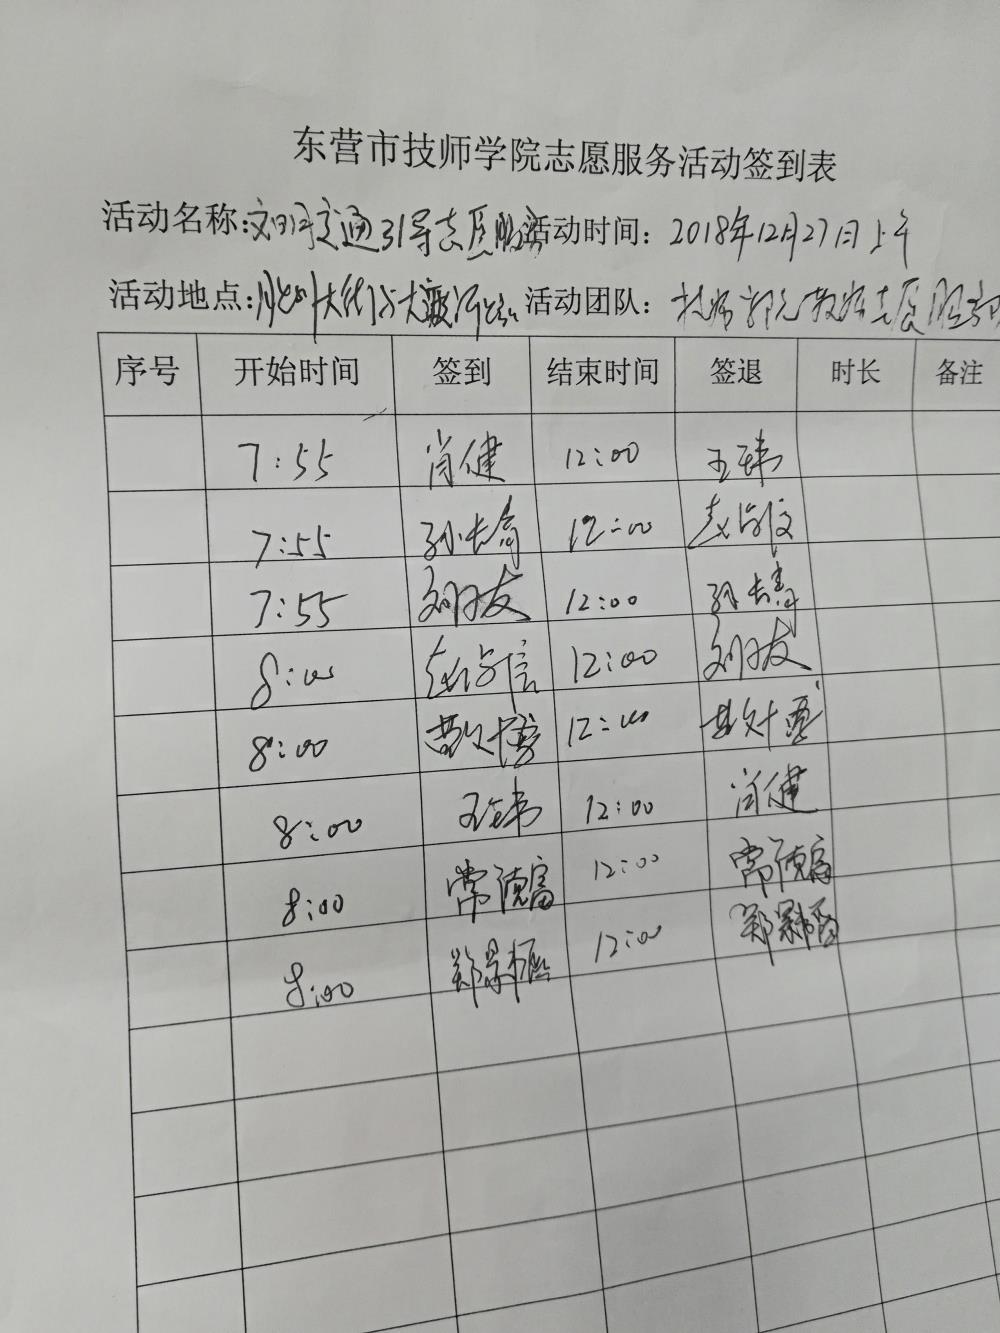 东营市技师学院志愿服务活动签到表
活动名称:文明交通引导志愿服务 活动时间: 2018年12月27日上午
活动地点: 大街与大渡河路 活动团队: 技师学院教师志愿服务
序号 开始时间 签到 结束时间 签退 时长 备注
7:55 肖健 12:00 王玮
7:55 孙长青 12:00 赵守信
7:55 刘友 12:00 孙长青
8:00 赵守信 12:00 刘友
8:00 12:00
8:00 王玮 12:00 肖健
8:00 常德富 12:00 常德富
8:00 郑景 12:00 郑景